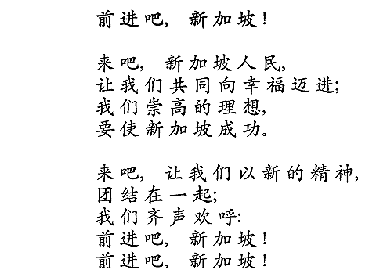 前进吧，新加坡！
来吧，新加坡人民，
让我们共同向幸福迈进；
我们崇高的理想，
要使新加坡成功。
来吧，让我们以新的精神，
团结在一起；
我们齐声欢呼：
前进吧，新加坡！
前进吧，新加坡！